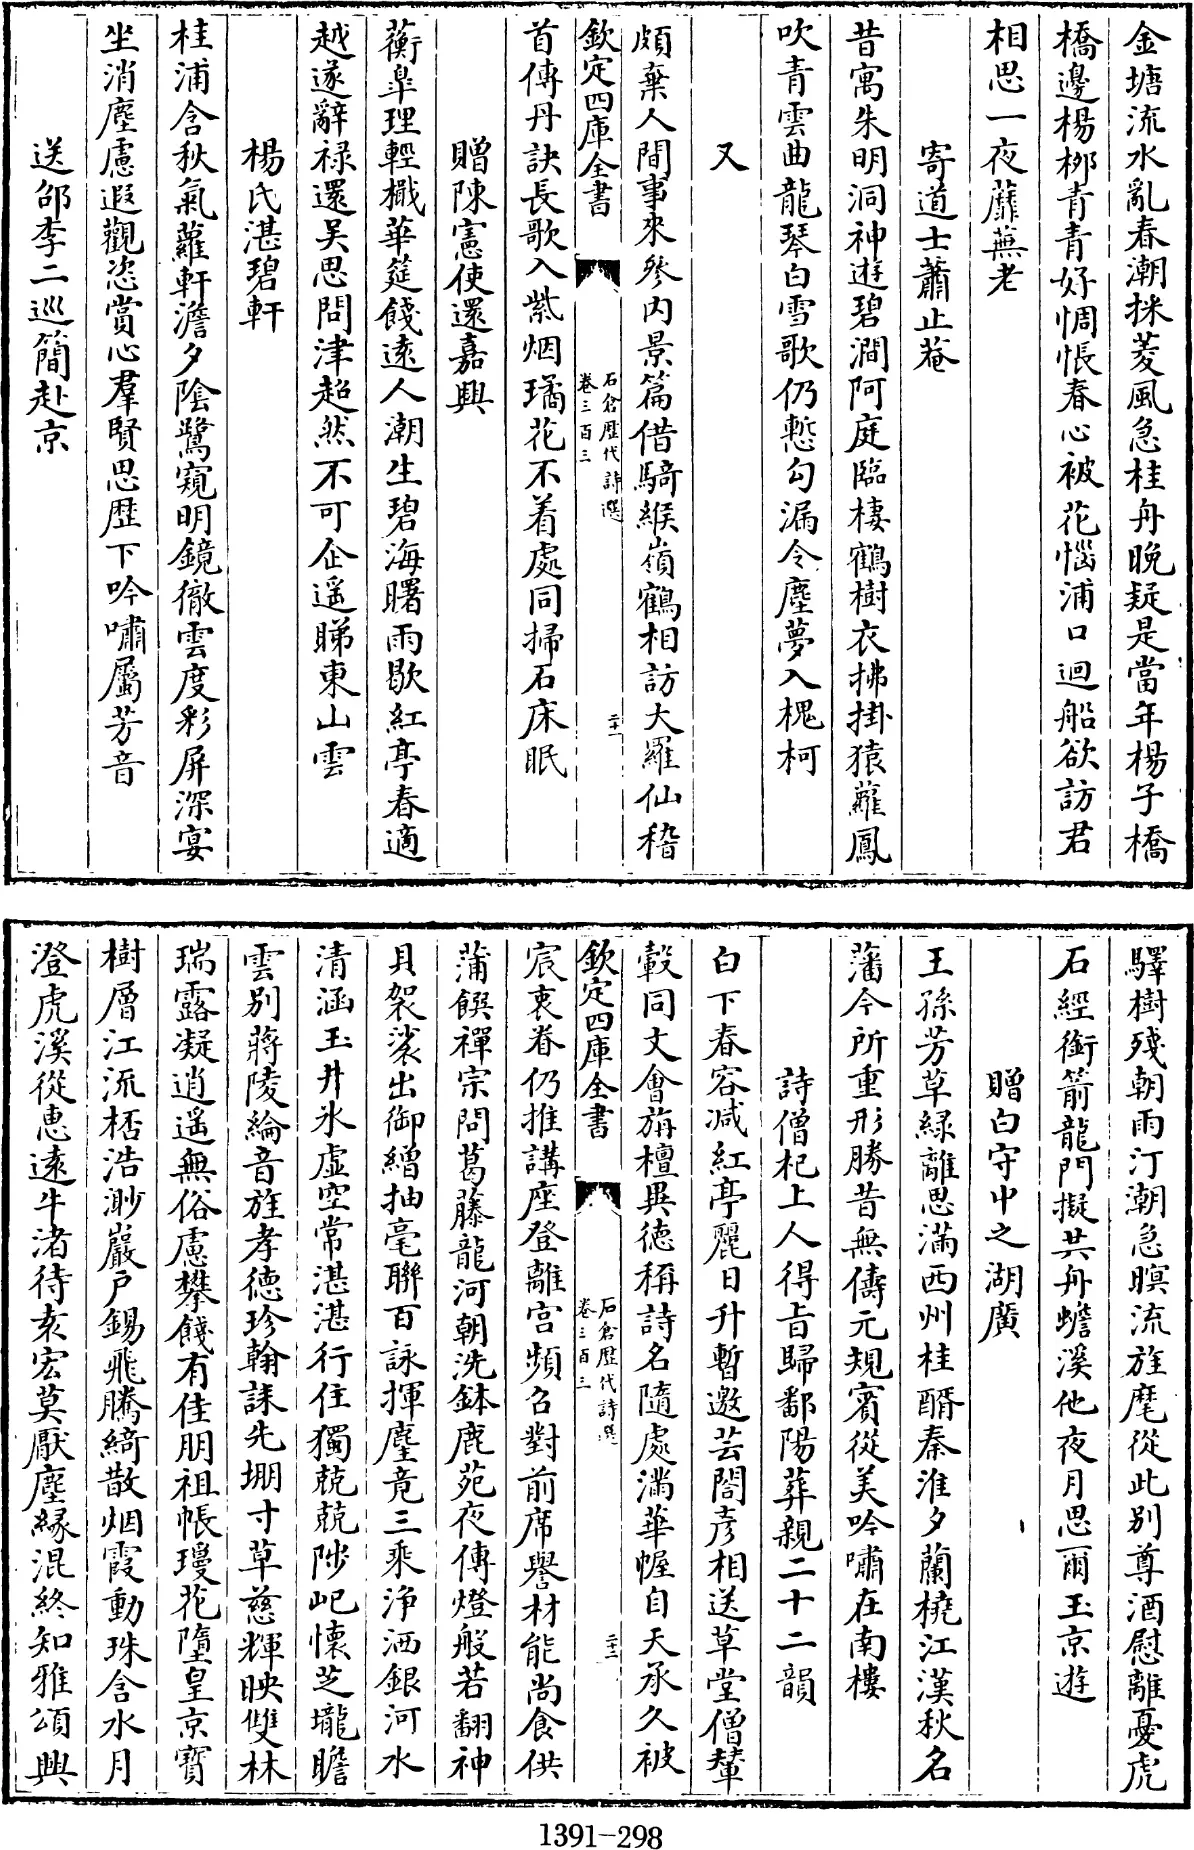 金塘流水亂春潮採菱風急桂舟晚疑是當年楊子橋
橋邊楊栁青青好惆悵春心被花惱浦口迴船欲訪君
相思一夜蘼蕪老
寄道士蕭止菴
昔寓朱明洞神遊碧澗阿庭臨棲鶴樹衣拂掛猿蘿鳳
吹青雲曲龍琴白雪歌仍慙勾漏令塵夢入槐柯
又
頗棄人間事來叅内景篇借騎緱嶺鶴相訪大羅仙稽
欽定四庫全書
石倉歷代詩選
卷三百三
二十二
首傳丹訣長歌入紫烟璚花不着處同掃石床眠
贈陳憲使還嘉興
蘅臯理輕檝華筵餞遠人潮生碧海曙雨歇紅亭春適
越遂辭禄還吴思問津超然不可企遥睇東山雲
楊氏湛碧軒
桂浦含秋氣蘿軒澹夕陰鷺窺明鏡徹雲度彩屏深宴
坐消塵慮遐觀恣賞心羣賢思歴下吟嘯屬芳音
送邵李二巡簡赴京
驛樹殘朝雨汀潮急暝流旌麾從此别尊酒慰離憂虎
石經銜箭龍門擬共舟蟾溪他夜月思爾玉京遊
贈白守中之湖廣
王孫芳草緑離思滿西州桂醑秦淮夕蘭橈江漢秋名
藩今所重形勝昔無儔元規賓從美吟嘯在南樓
詩僧杞上人得旨歸鄱陽葬親二十二韻
白下春容减紅亭麗日升暫邀芸閣彦相送草堂僧輦
轂同文會旃檀異德稱詩名隨處滿華幄自天承久被
欽定四庫全書
石倉歷代詩選
卷三百三
二十三
宸衷眷仍推講座登離宫頻召對前席譽材能尚食供
蒲饌禪宗問葛藤龍河朝洗鉢鹿苑夜傳燈般若翻神
貝袈裟出御繒抽毫聯百詠揮麈竟三乘浄洒銀河水
清涵玉井氷虚空常湛湛行住獨兢兢陟屺懷芝壠瞻
雲别蔣陵綸音旌孝德珍翰誄先堋寸草慈輝映雙林
瑞露凝逍遥無俗慮攀餞有佳朋祖帳璦花墮皇京寳
樹層江流栝浩渺巖戶錫飛騰綺散烟霞動珠含水月
澄虎溪從惠遠牛渚待袁宏莫厭塵縁混終知雅頌興
1391-298